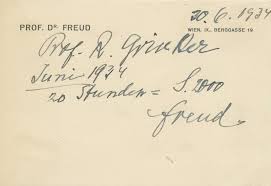 20. 6. 1934
PROF. DR. FREUD
WIEN, IX., BERGGASSE 19
Prof. R. Grinker
Juni 1934
20 Stunden = S. 2000
Freud.